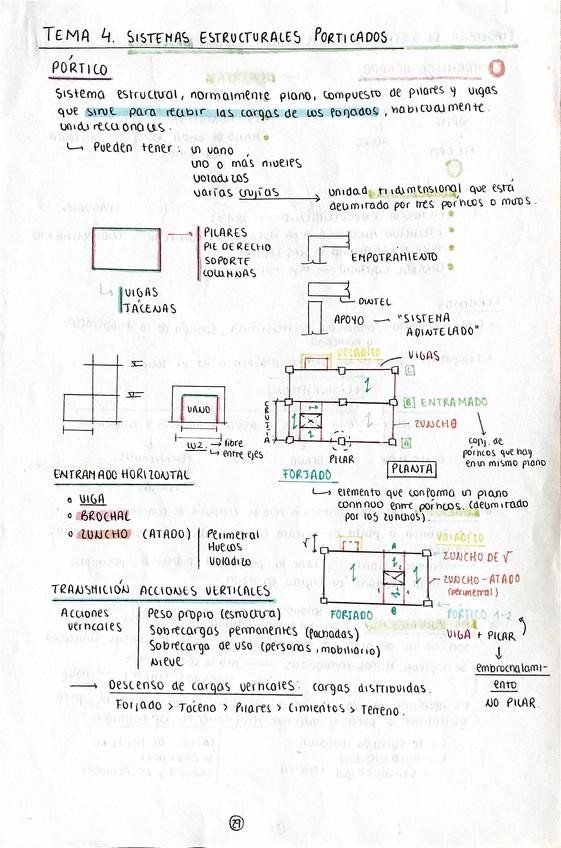 TEMA 4. SISTEMAS ESTRUCTURALES PORTICADOS
PÓRTICO
Sistema estructural, normalmente plano, compuesto de pilares y vigas
que sirve para recibir las cargas de los forjados, habitualmente
unidireccionales.
Pueden tener: un vano
uno o más niveles
voladizos
varias crujías → unidad tridimensional que está
delimitada por tres pórticos o muros.
PILARES
PIE DERECHO
SOPORTE
COLUMNAS
VIGAS
TÁCENAS
EMPOTRAMIENTO
DINTEL
APOYO — "SISTEMA
ADINTELADO"
VANO
luz → libre
entre ejes
VOLADIZO
VIGAS
C
B ENTRAMADO
ZUNCHO
A
CRUJÍA
PILAR
PLANTA
conj. de
pórticos que hay
en un mismo plano
FORJADO
elemento que conforma un plano
continuo entre pórticos. (delimitado
por los zunchos).
ENTRAMADO HORIZONTAL
VIGA
BROCHAL
ZUNCHO (ATADO)
Perimetral
Huecos
Voladizo
VOLADIZO
V
A
ZUNCHO DE V
ZUNCHO-ATADO
(perimetral)
FORJADO
B
PÓRTICO 1-2
VIGA + PILAR
embrochalami-
ento
NO PILAR.
TRANSMICIÓN ACCIONES VERTICALES
Acciones
verticales
Peso propio (estructura)
Sobrecargas permanentes (fachadas)
Sobrecarga de uso (personas, mobiliario)
Nieve
→ Descenso de cargas verticales: cargas distribuidas.
Forjado > Tácena > Pilares > Cimientos > Terreno.
29